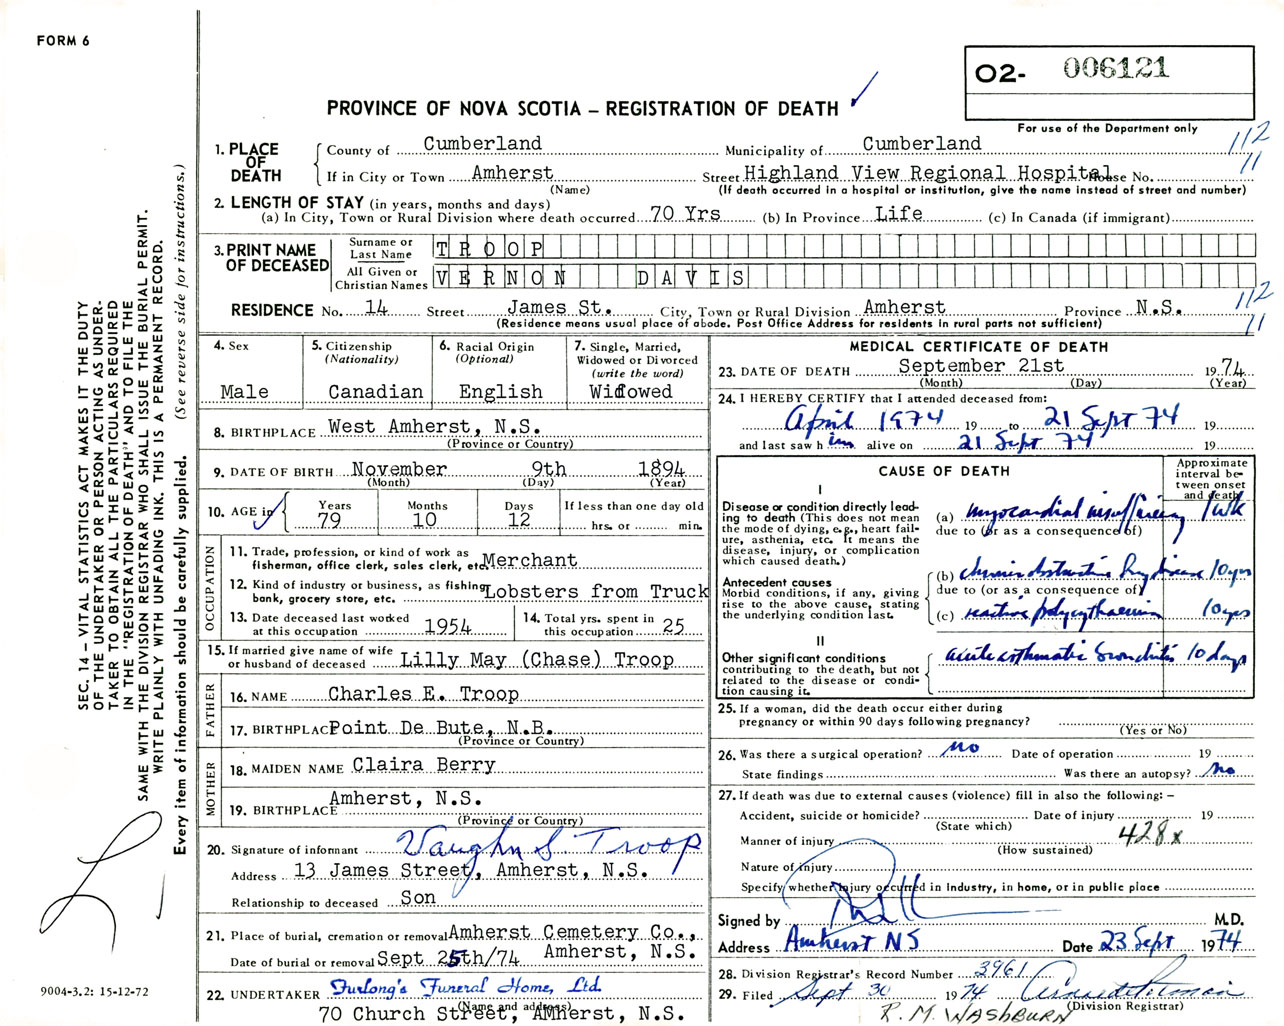 FORM 6
O2- 006121
PROVINCE OF NOVA SCOTIA – REGISTRATION OF DEATH ✓
For use of the Department only
1. PLACE OF DEATH
County of Cumberland Municipality of Cumberland 112
If in City or Town Amherst Street Highland View Regional Hospital House No. 11
(Name) (If death occurred in a hospital or institution, give the name instead of street and number)
2. LENGTH OF STAY (in years, months and days)
(a) In City, Town or Rural Division where death occurred 70 Yrs (b) In Province Life (c) In Canada (if immigrant)
3. PRINT NAME OF DECEASED
Surname or Last Name TROOP
All Given or Christian Names VERNON DAVIS
RESIDENCE No. 14 Street James St. City, Town or Rural Division Amherst Province N.S. 112
(Residence means usual place of abode. Post Office Address for residents in rural parts not sufficient) 11
4. Sex
Male
5. Citizenship
(Nationality)
Canadian
6. Racial Origin
(Optional)
English
7. Single, Married,
Widowed or Divorced
(write the word)
Widowed
8. BIRTHPLACE West Amherst, N.S.
(Province or Country)
9. DATE OF BIRTH November 9th 1894
(Month) (Day) (Year)
10. AGE in
Years Months Days If less than one day old
79 10 12 hrs. or min.
OCCUPATION
11. Trade, profession, or kind of work as
fisherman, office clerk, sales clerk, etc. Merchant
12. Kind of industry or business, as fishing,
bank, grocery store, etc. Lobsters from Truck
13. Date deceased last worked
at this occupation 1954
14. Total yrs. spent in
this occupation 25
15. If married give name of wife
or husband of deceased Lilly May (Chase) Troop
FATHER
16. NAME Charles E. Troop
17. BIRTHPLACE Point De Bute, N.B.
(Province or Country)
MOTHER
18. MAIDEN NAME Claira Berry
19. BIRTHPLACE Amherst, N.S.
(Province or Country)
20. Signature of informant Vaughn S Troop
Address 13 James Street, Amherst, N.S.
Relationship to deceased Son
21. Place of burial, cremation or removal Amherst Cemetery Co.,
Date of burial or removal Sept 25th/74 Amherst, N.S.
22. UNDERTAKER Furlong's Funeral Home, Ltd.
(Name and address)
70 Church Street, Amherst, N.S.
MEDICAL CERTIFICATE OF DEATH
23. DATE OF DEATH September 21st 1974
(Month) (Day) (Year)
24. I HEREBY CERTIFY that I attended deceased from:
April 1974 19 to 21 Sept 74 19
and last saw him alive on 21 Sept 74 19
CAUSE OF DEATH
Approximate interval between onset and death
I
Disease or condition directly leading to death (This does not mean the mode of dying, e.g., heart failure, asthenia, etc. It means the disease, injury, or complication which caused death.)
(a) myocardial insufficiency 1 wk
due to (or as a consequence of)
Antecedent causes
Morbid conditions, if any, giving rise to the above cause, stating the underlying condition last.
(b) chronic obstructive lung disease 10 yrs
due to (or as a consequence of)
(c) reactive polycythaemia 10 yrs
II
Other significant conditions
contributing to the death, but not related to the disease or condition causing it.
acute asthmatic bronchitis 10 days
25. If a woman, did the death occur either during
pregnancy or within 90 days following pregnancy?
(Yes or No)
26. Was there a surgical operation? no Date of operation 19
State findings Was there an autopsy? No
27. If death was due to external causes (violence) fill in also the following: –
Accident, suicide or homicide? Date of injury 19
(State which)
Manner of injury 428x
(How sustained)
Nature of injury
Specify whether injury occurred in Industry, in home, or in public place
Signed by M.D.
Address Amherst NS Date 23 Sept 1974
28. Division Registrar's Record Number 3961
29. Filed Sept 30 1974
(Division Registrar)
R. M. WASHBURN
SEC. 14 – VITAL STATISTICS ACT MAKES IT THE DUTY
OF THE UNDERTAKER OR PERSON ACTING AS UNDER-
TAKER TO OBTAIN ALL THE PARTICULARS REQUIRED
IN THE "REGISTRATION OF DEATH" AND TO FILE THE
SAME WITH THE DIVISION REGISTRAR WHO SHALL ISSUE THE BURIAL PERMIT.
WRITE PLAINLY WITH UNFADING INK. THIS IS A PERMANENT RECORD.
Every item of information should be carefully supplied. (See reverse side for instructions.)
9004-3.2: 15-12-72